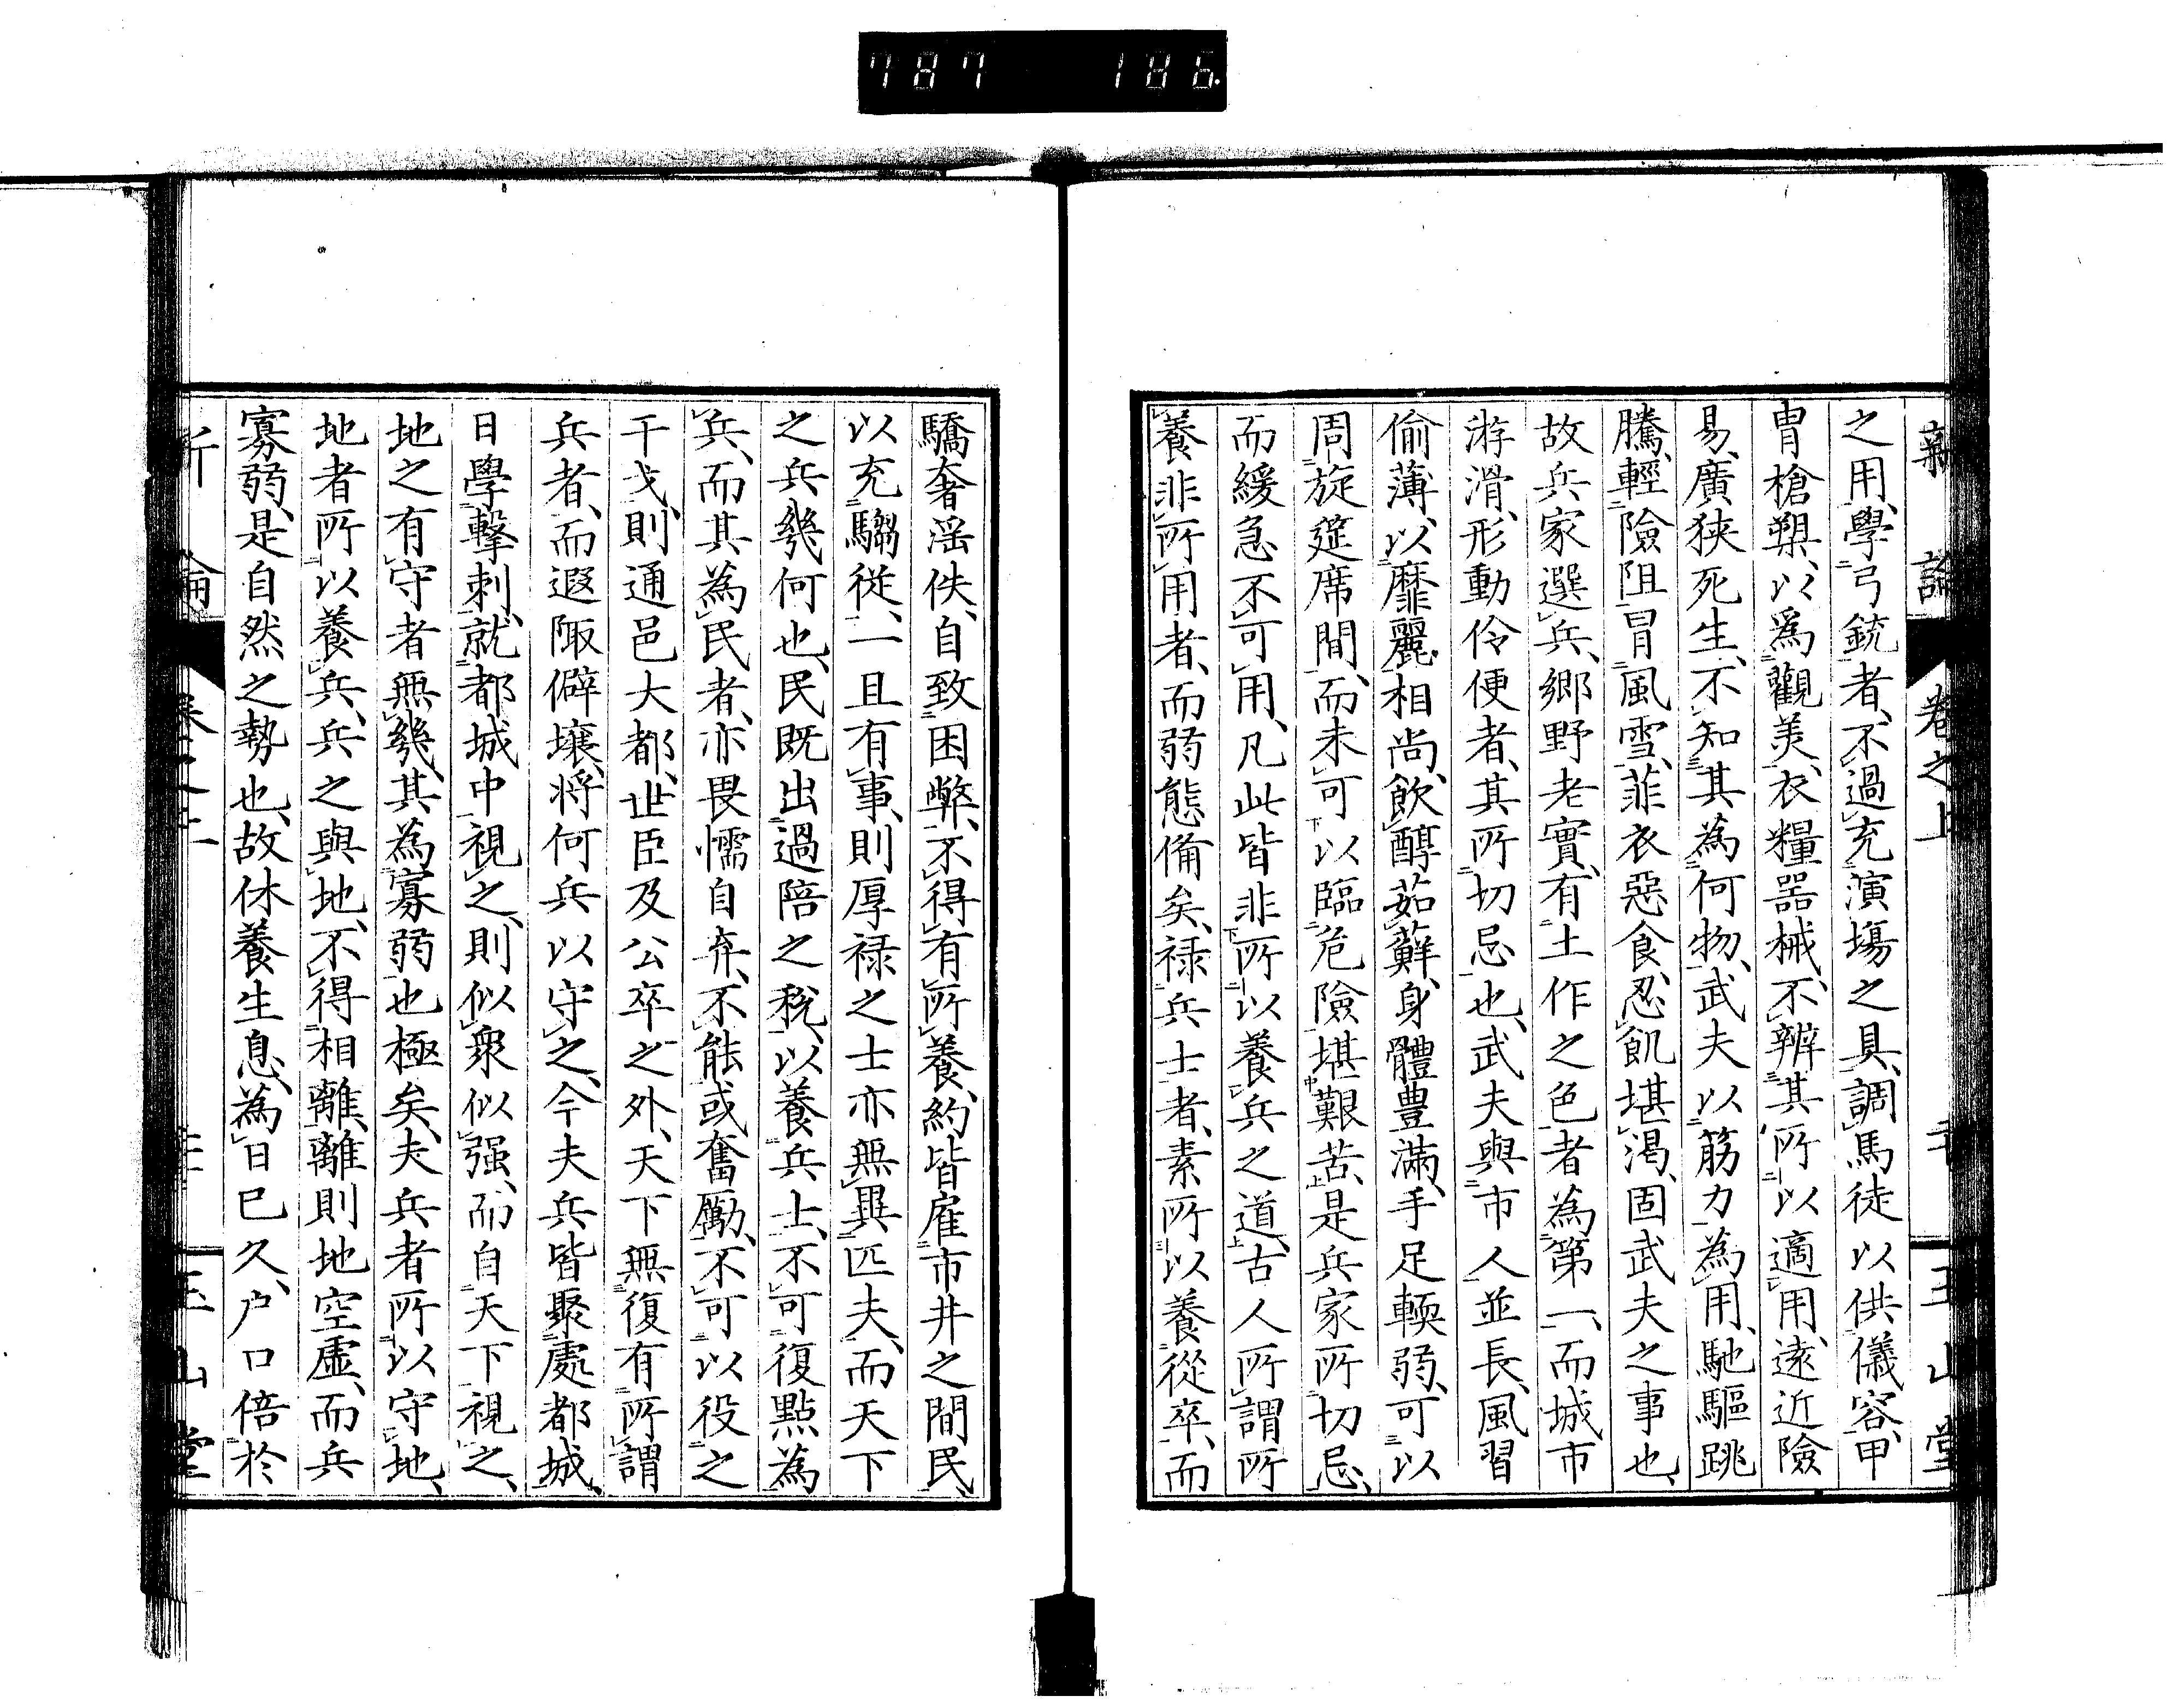 787 186.
新論 卷之上 玉山堂
之用、學弓銃者、不過充演場之具、調馬徒以供儀容、甲
冑槍槊、以爲觀美、衣糧器械、不辨其所以適用、遠近險
易、廣狹死生、不知其為何物、武夫以筋力為用、馳驅跳
騰、輕險阻、冒風雪、菲衣惡食、忍飢堪渴、固武夫之事也、
故兵家選兵、鄉野老實、有土作之色者為第一、而城市
游滑、形動伶便者、其所切忌也、武夫與市人並長、風習
偷薄、以靡麗相尚、飲醇茹蘚、身體豊滿、手足輭弱、可以
周旋筵席間、而未可以臨危險堪艱苦、是兵家所切忌、
而緩急不可用、凡此皆非所以養兵之道、古人所謂所
養非所用者、而弱態備矣、祿兵士者、素所以養從卒、而
驕奢淫佚、自致困弊、不得有所養、約皆雇市井之間民、
以充騶從、一旦有事、則厚祿之士亦無異匹夫、而天下
之兵幾何也、民既出過陪之稅、以養兵士、不可復點為
兵、而其為民者、亦畏懦自弃、不能或奮勵、不可以役之
干戈、則通邑大都、世臣及公卒之外、天下無復有所謂
兵者、而遐陬僻壤、将何兵以守之、今夫兵皆聚處都城、
日學擊刺、就都城中視之、則似衆似强、而自天下視之、
地之有守者無幾、其為寡弱也極矣、夫兵者所以守地、
地者所以養兵、兵之與地、不得相離、離則地空虛、而兵
寡弱、是自然之勢也、故休養生息、為日已久、户口倍於
論 山堂